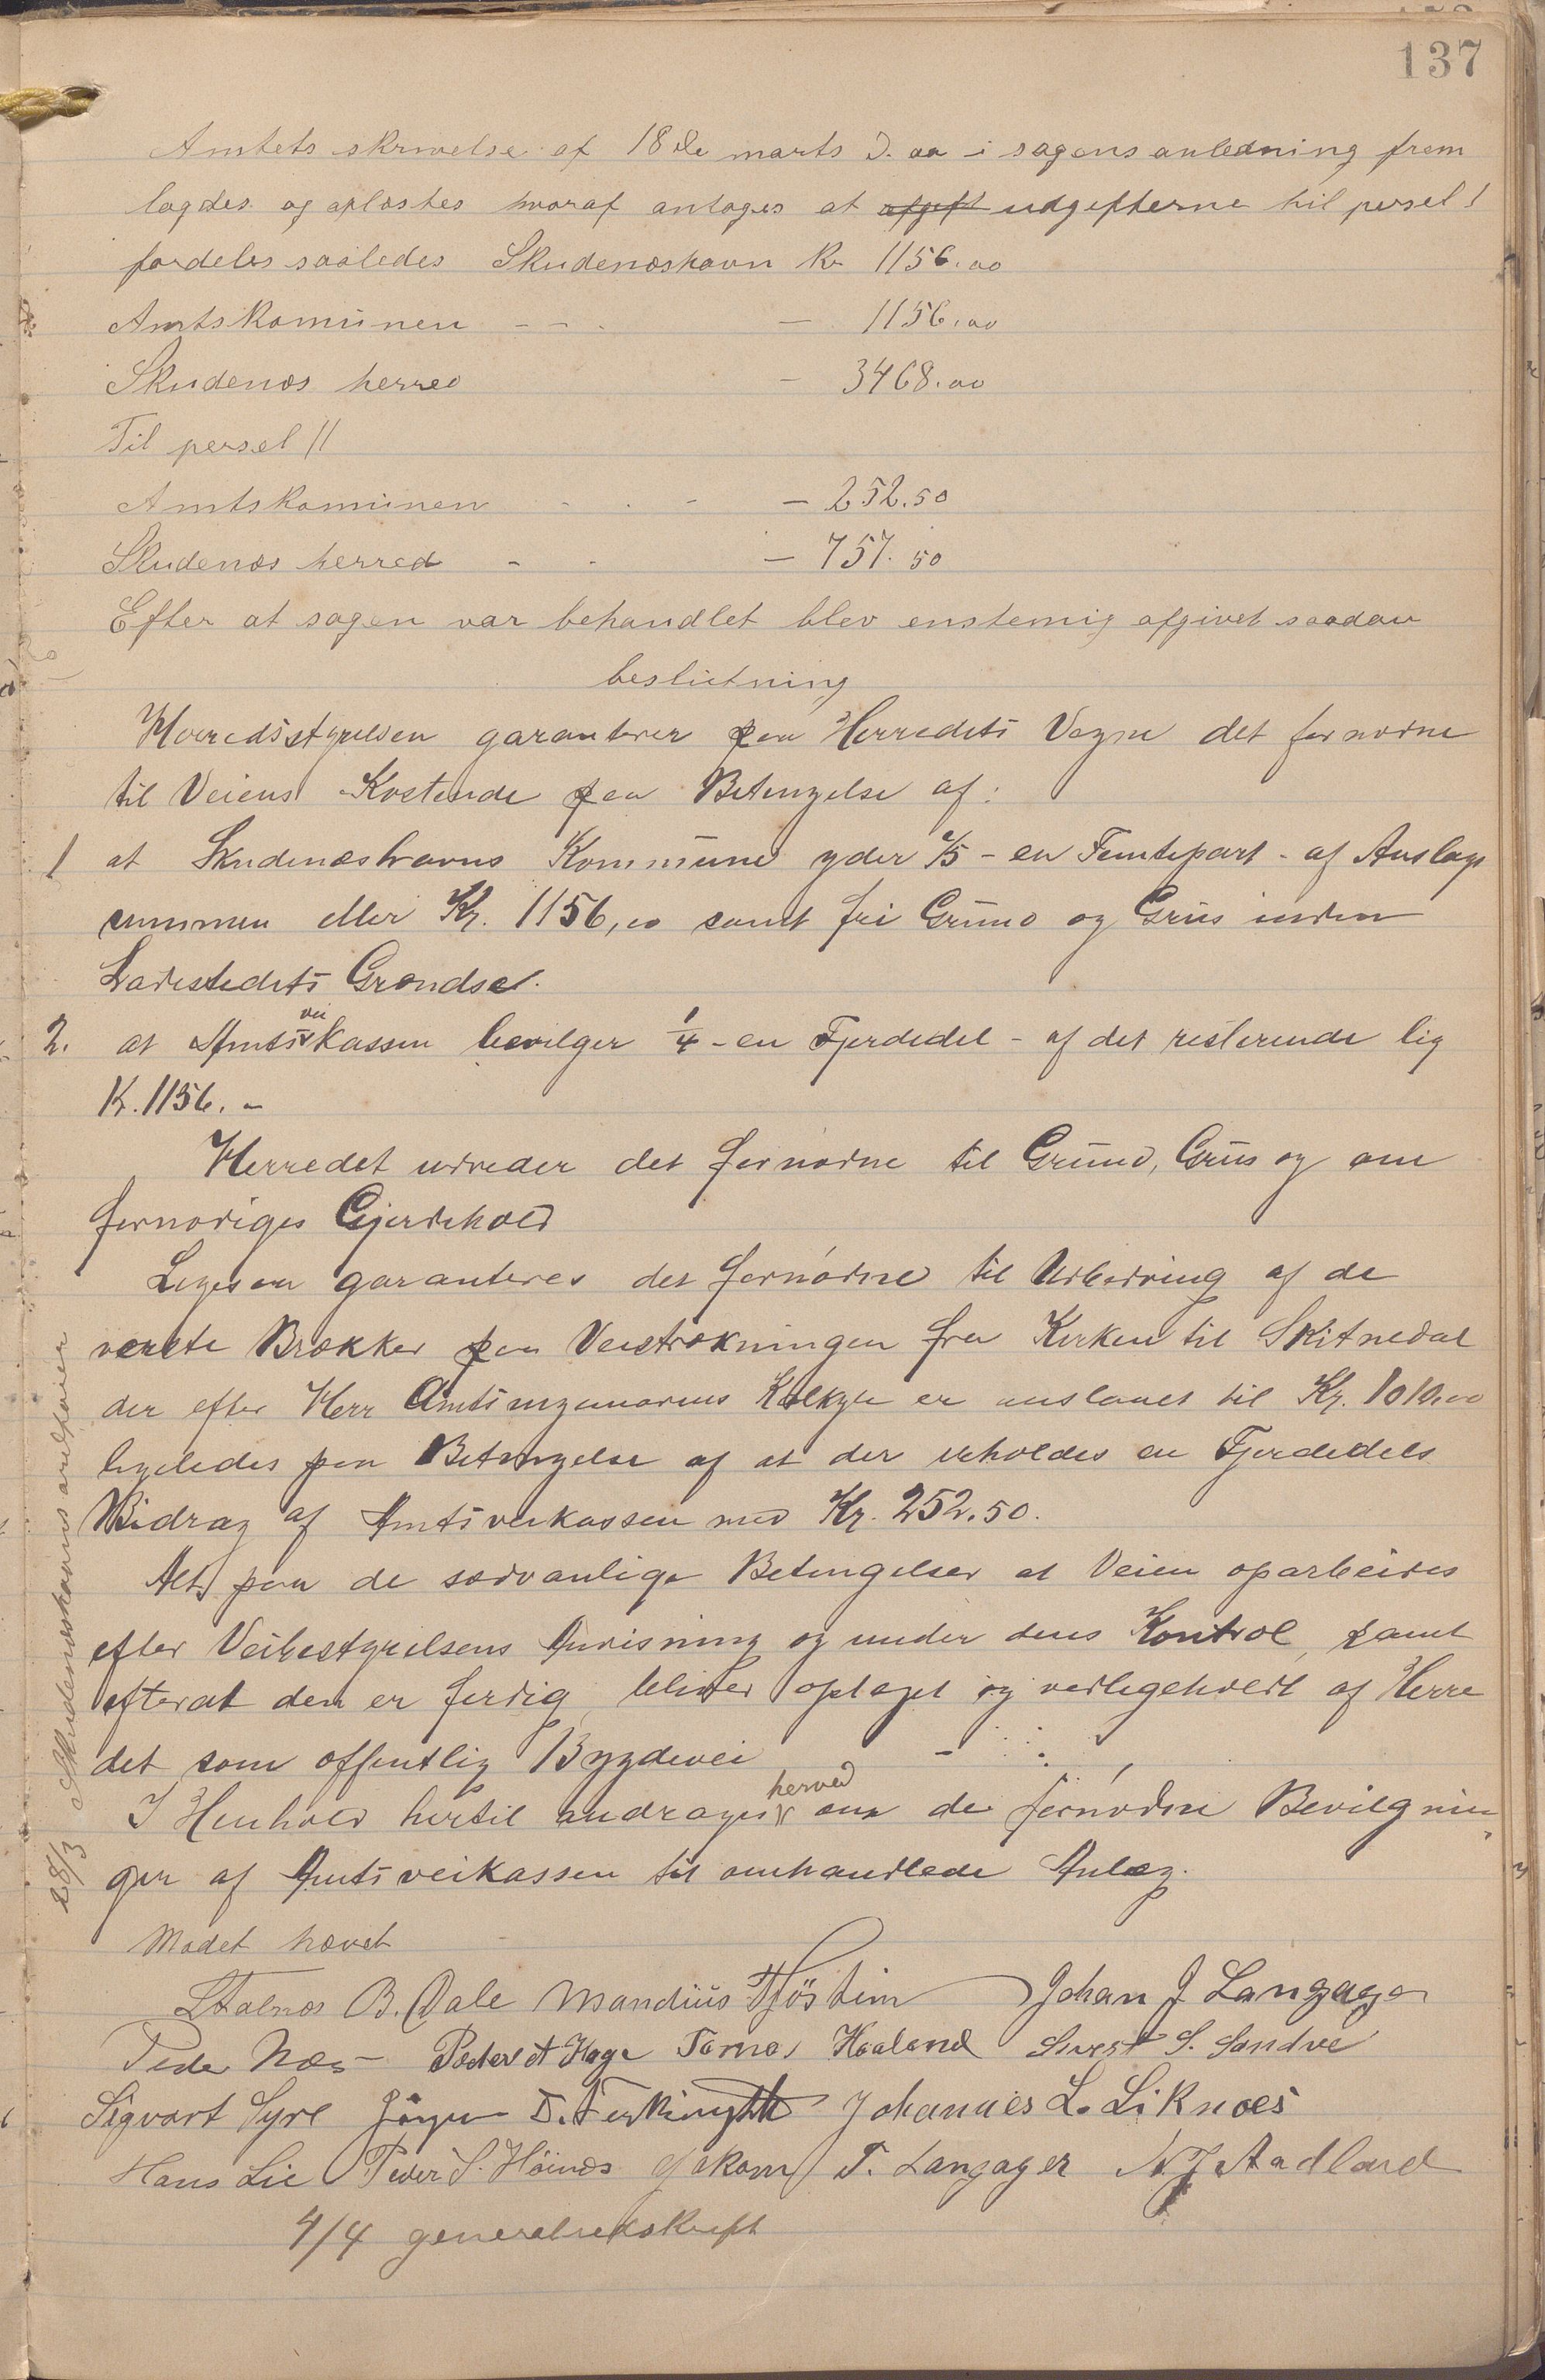 137
Amtets skrivelse af 18de marts d. aa i sagens anledning frem
lagdes og oplæstes hvoraf antages at afgift udgifterne til persel I
fordeles saaledes Skudeneshavn Kr 1156.00
Amtskomünen - - . — 1156.00
Skudenes herred — 3468.00
Til persel II
Amtskomünen - . - — 252.50
Skudenes herred - - — 757.50
Efter at sagen var behandlet blev enstemig afgivet saadan
beslutning
Herredsstyrelsen garanterer paa Herredets Vegne det fornødne
til Veiens Kostende paa Betingelse af:
1 at Skudeneshavns Kommüne yder 1/5 - en Femtepart - af Anslags
summen eller Kr. 1156,00 samt fri Gründ og Grüs inden
Ladestedets Grændse.
2. at Amtsveikassen bevilger 1/4 - en Fjerdedel - af det resterende lig
Kr. 1156. -
Herredet udreder det fornødne til Gründ, Grüs og om
fornødiges Gjerdehold
Ligesaa garanteres det fornødne til Udbedring af de
verste Brækker paa Veistrækningen fra Kirken til Skitnedal
der efter Herr Amtsingeniørens Kalkyle er anslaaet til Kr. 1010.00
ligeledes paa Betingelse af at der erholdes en Fjerdedels
Bidrag af Amtsveikassen med Kr. 252.50.
Alt paa de sedvanlige Betingelser at Veien oparbeides
efter Veibestyrelsens Anvisning og under dens Kontrol, samt
efterat den er ferdig, bliver optaget og vedligeholdt af Herre
det som offentlig Bygdevei
I Henhold hertil andrages herved om de fornødne Bevilgnin
ger af Amtsveikassen til omhandlede Anlæg.
28/3 Skudeneshavns
Mødet hævet
Stalnes B. Dale Mandiüs Tjöstein Johan J Langager
Peder Næs Peder A Hage Tørnes Haaland Sivert S. Sandve
Sigvart Syre Jørgen D. Johannes L. Liknæs
Hans Lie Peder S. Høinæs Jakom T. Langager N. J. Aadland
4/4